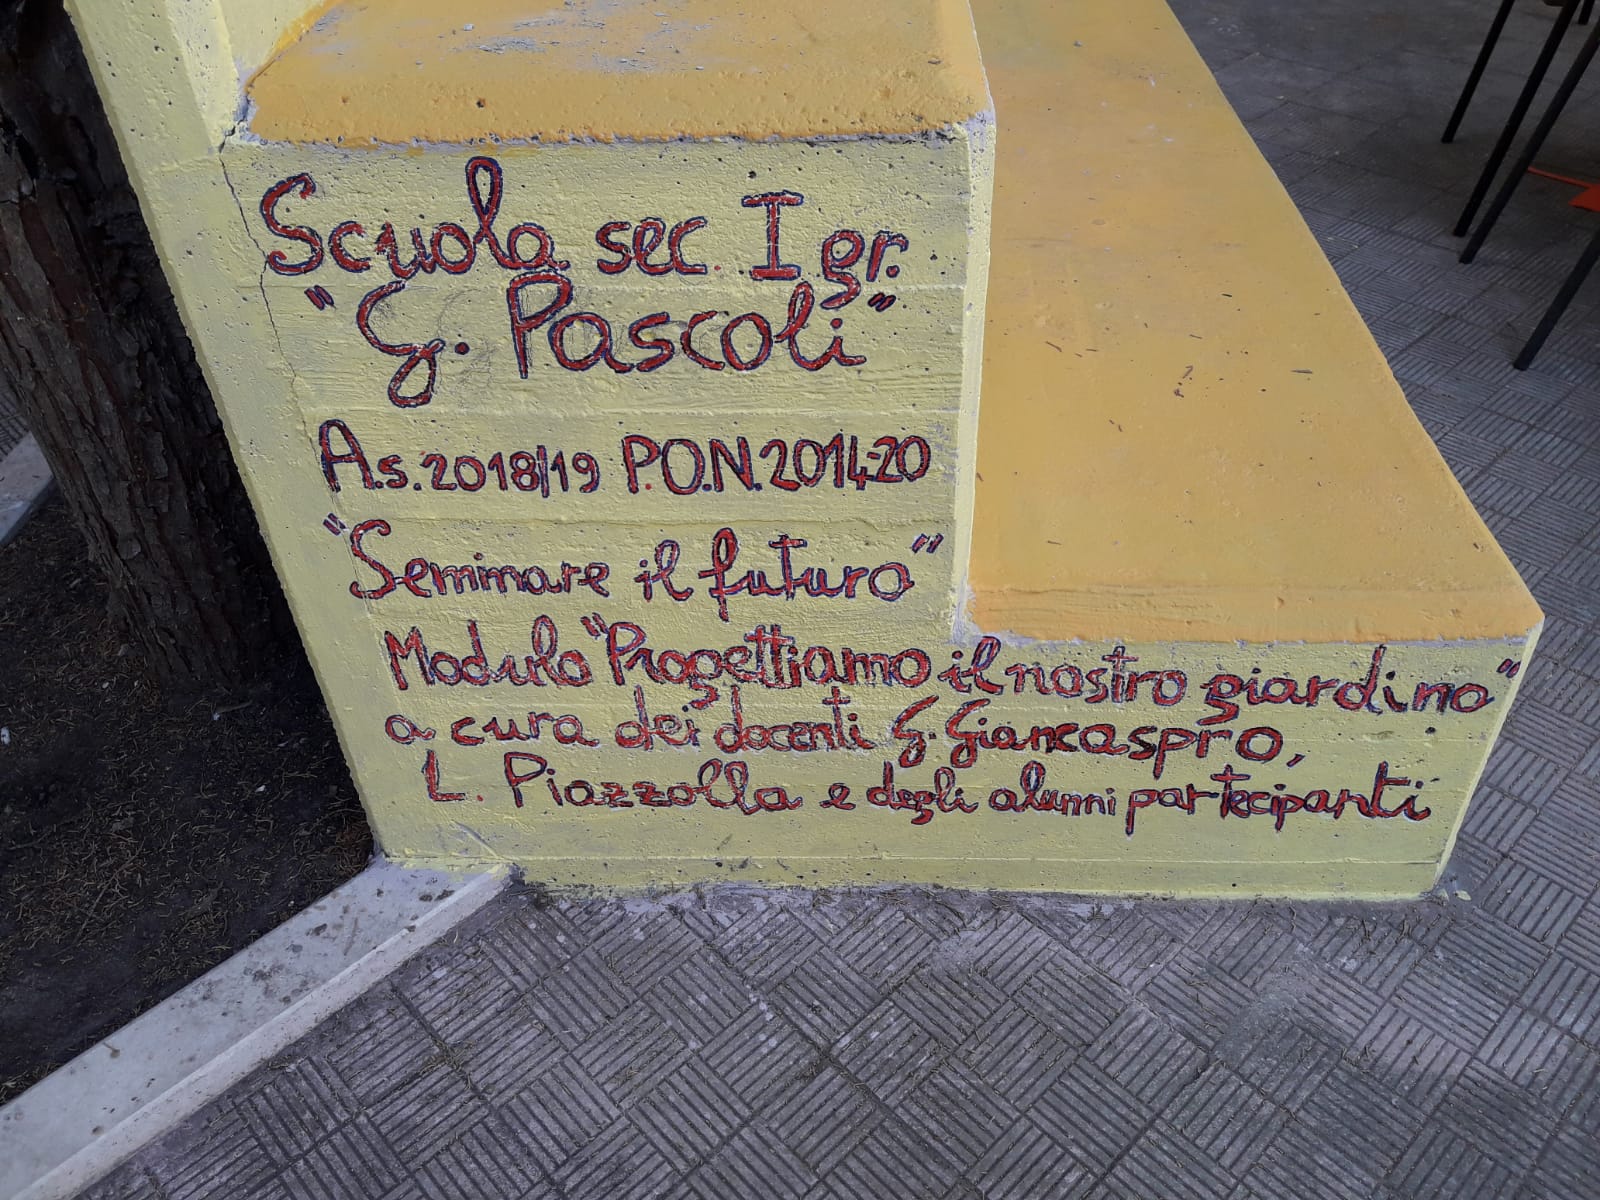 Scuola sec. I gr.
"G. Pascoli"
A.s. 2018/19 P.O.N. 2014-20
"Seminare il futuro"
Modulo "Progettiamo il nostro giardino"
a cura dei docenti G. Giancaspro,
L. Piazzolla e degli alunni partecipanti